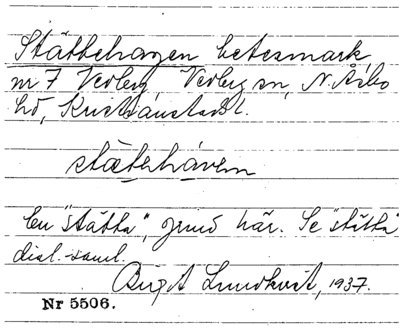 Stättehagen betesmark,
nr 7 Vedby, Vedby sn, N. Åsbo
hd, Kristianstad l.
stætəhávəm
En "stätta", grind här. Se "stätta"
dial.-saml.
Birgit Lundkvist, 1937.
Nr 5506.